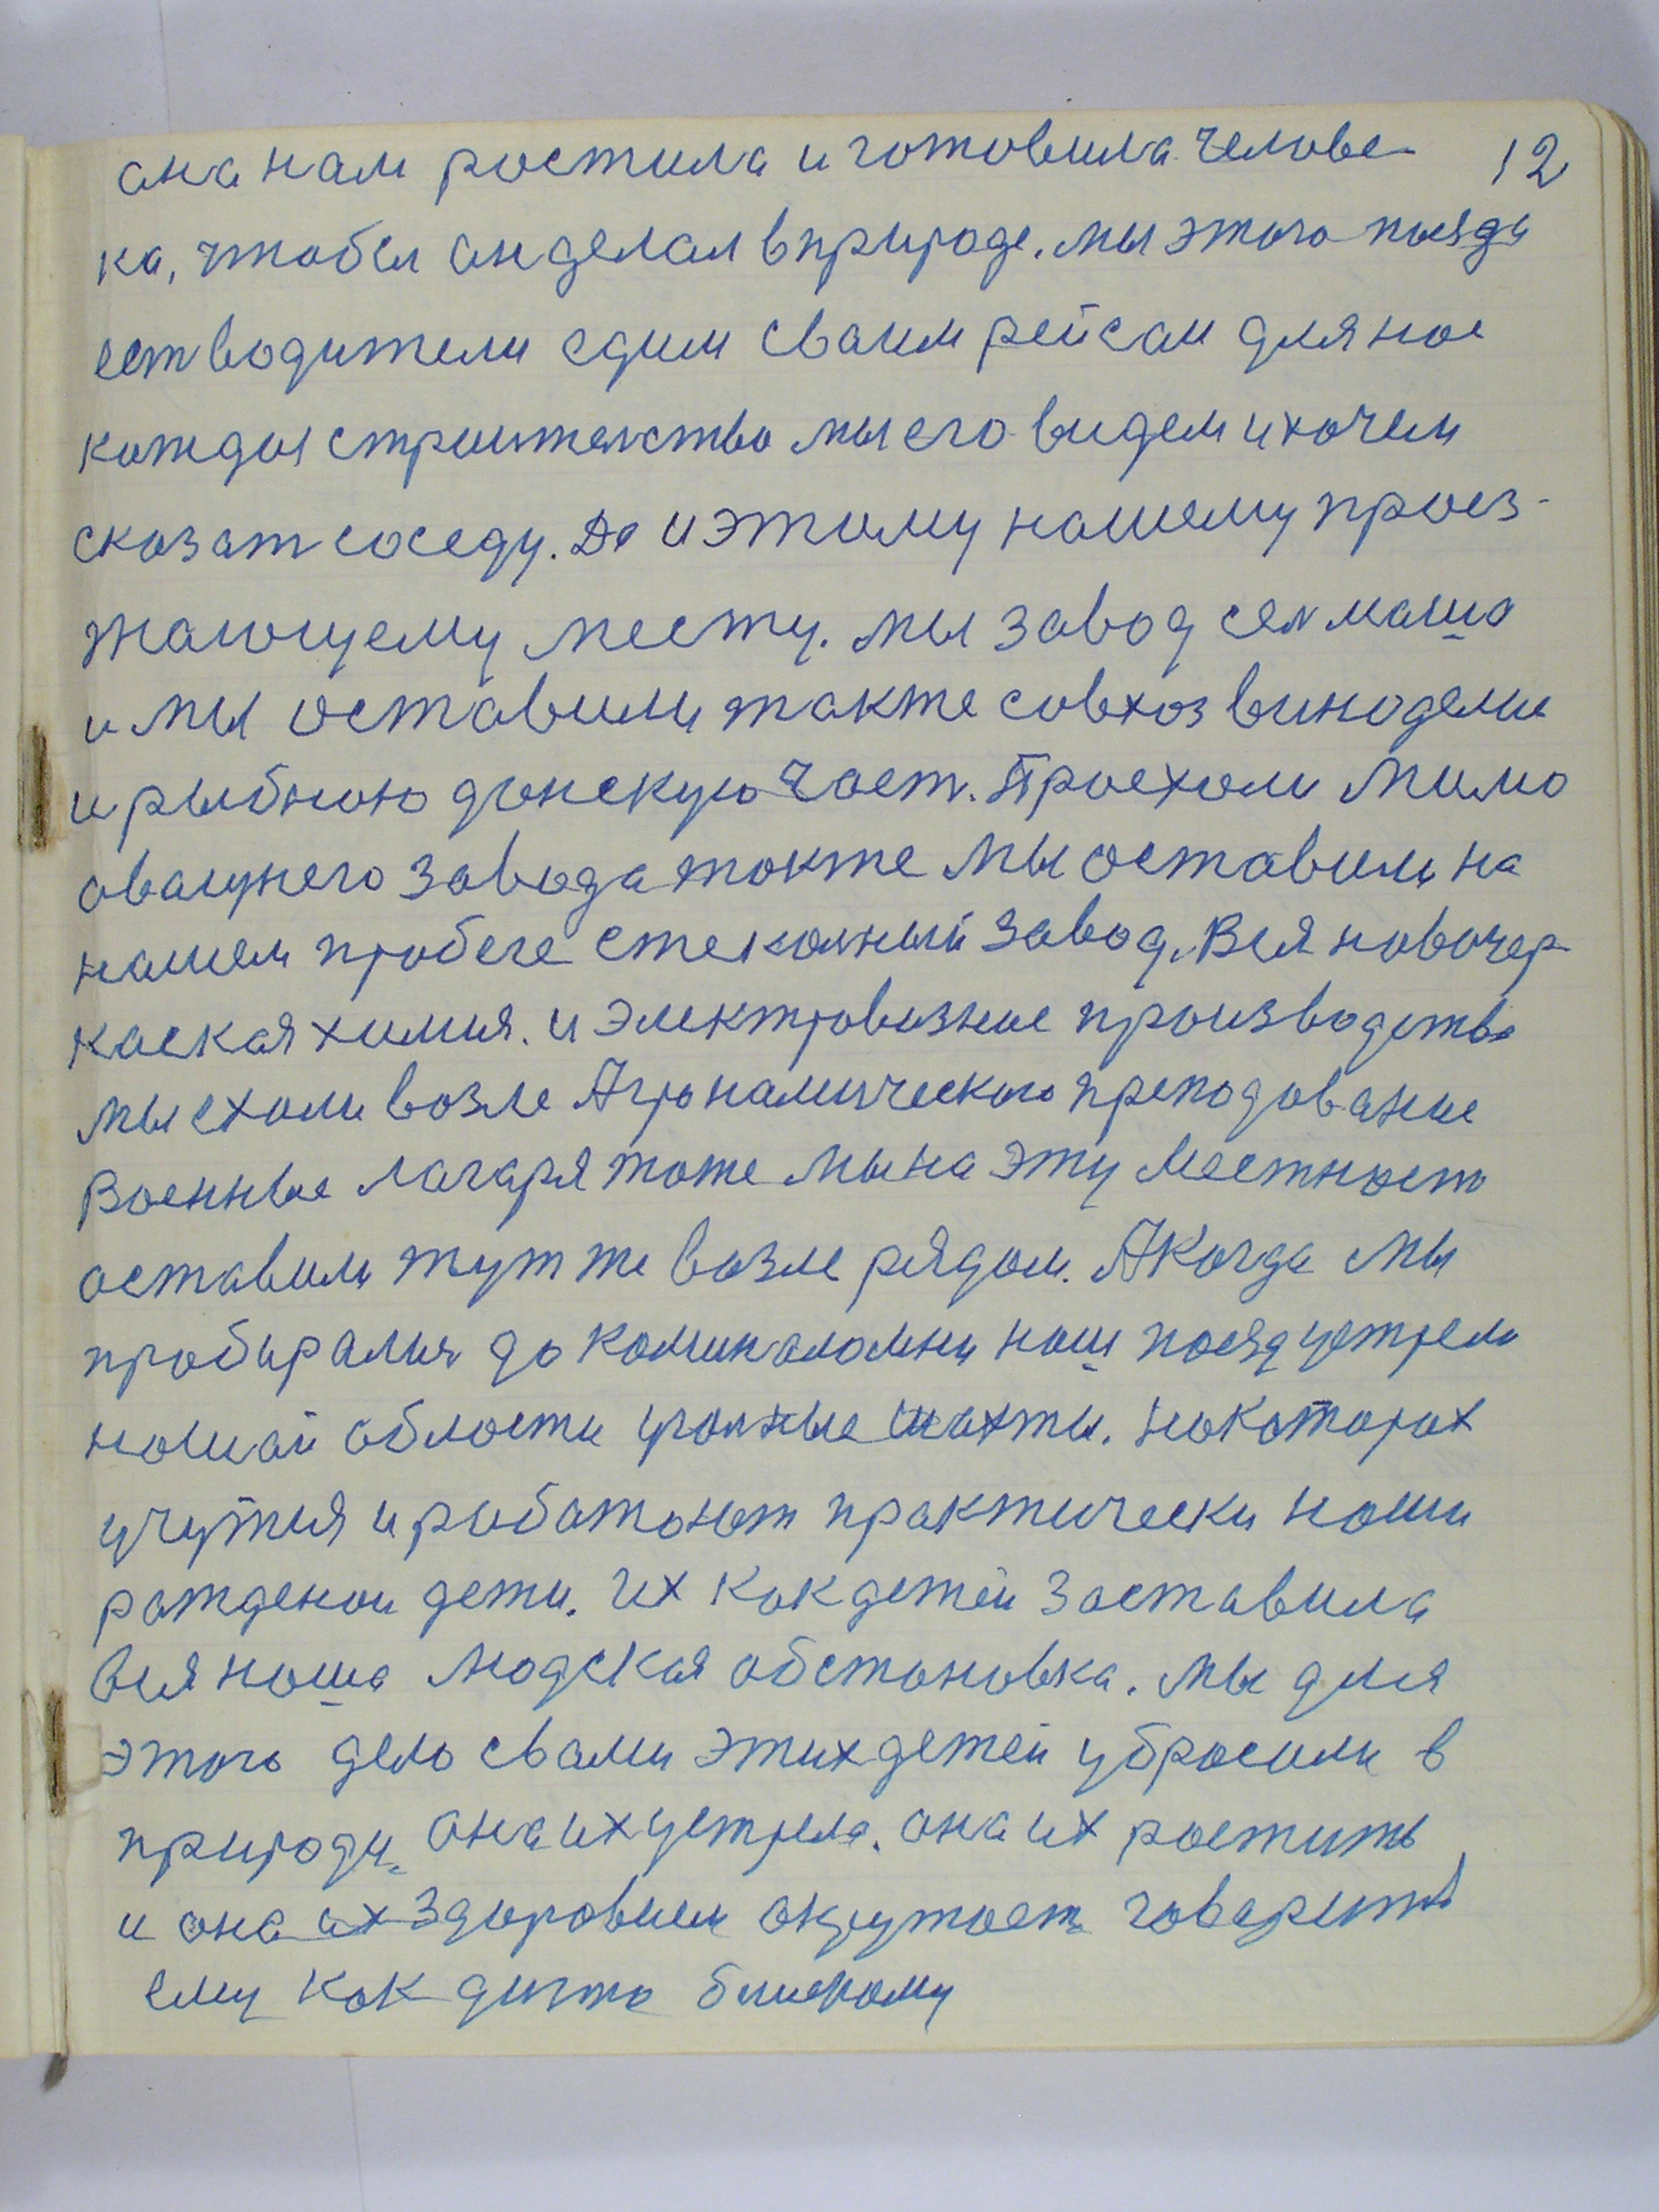 12
она нам ростила и готовила челове-
ка, чтобы он делал в природе. мы этого поязда
ест водители едим своим рейсам для нас
каждая строителство мы его видем и хочем
сказат соседу. Да и этому нашему проез-
жающему месту. мы завод сел маша
и мы оставили также совхоз виноделие
и рыбною донскую част. Проехали мимо
оващнего завода также мы оставили на
нашем пробеге стеколный завод. Вся новочер
каская химия. и электровозное производство
мы ехали возле Агрономического преподование
Военные лагаря тоже мы на эту местност
оставили тут же возле рядом. А когда мы
пробиралися до каминаломни наш пояяд устрели
нашай области уголные шахты. на которых
учутся и работают практически наши
рожденои дети. их как детей заставила
вся наша людская обстановка. мы для
этого дело свами этих детей убросили в
природу. она их устрела. она их роститъ
и она их здоровием окружает говоритъ
ему как дитю близкому